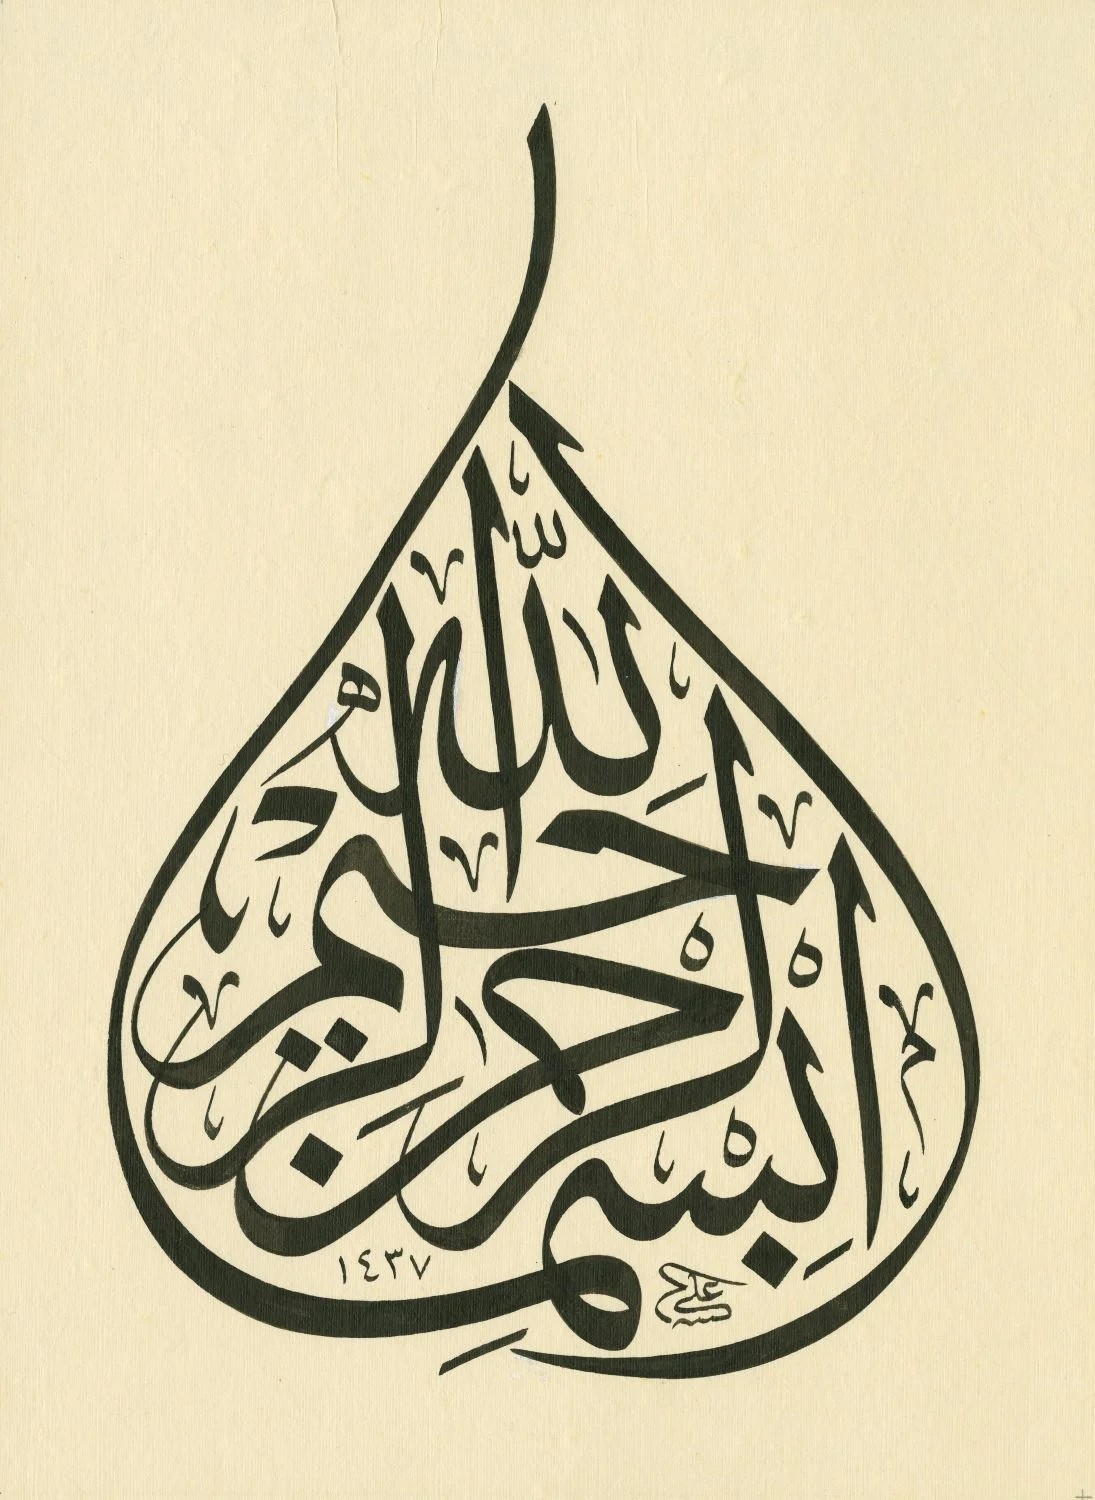 بسم الله الرحمن الرحيم
١٤٣٧
علي